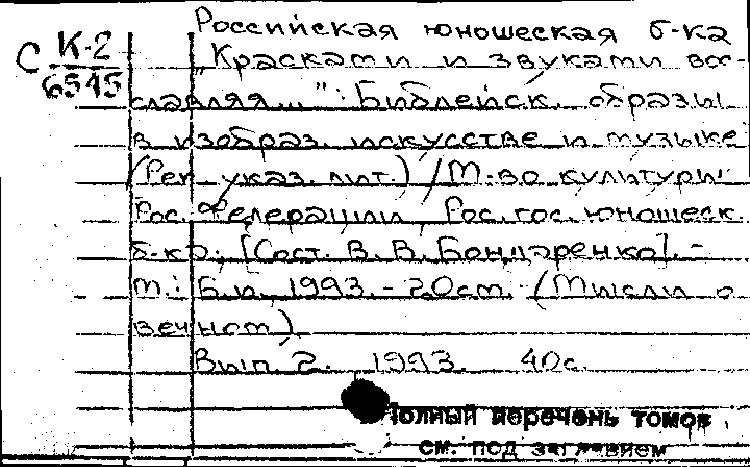 Российская юношеская б-ка
С К-2
6545
"Красками и звуками вос-
славляя...": Библейск. образы
в изобраз. искусстве и музыке
(Рек. указ. лит.) / М-во культуры
Рос. Федерации, Рос. гос. юношеск.
б-ка; [Сост. В. В. Бондаренко]. -
М.: Б.и., 1993. - 20см. - (Мысли о
вечном)
Вып. 2. 1993. 40с.
Полный перечень томов
см. под заглавием